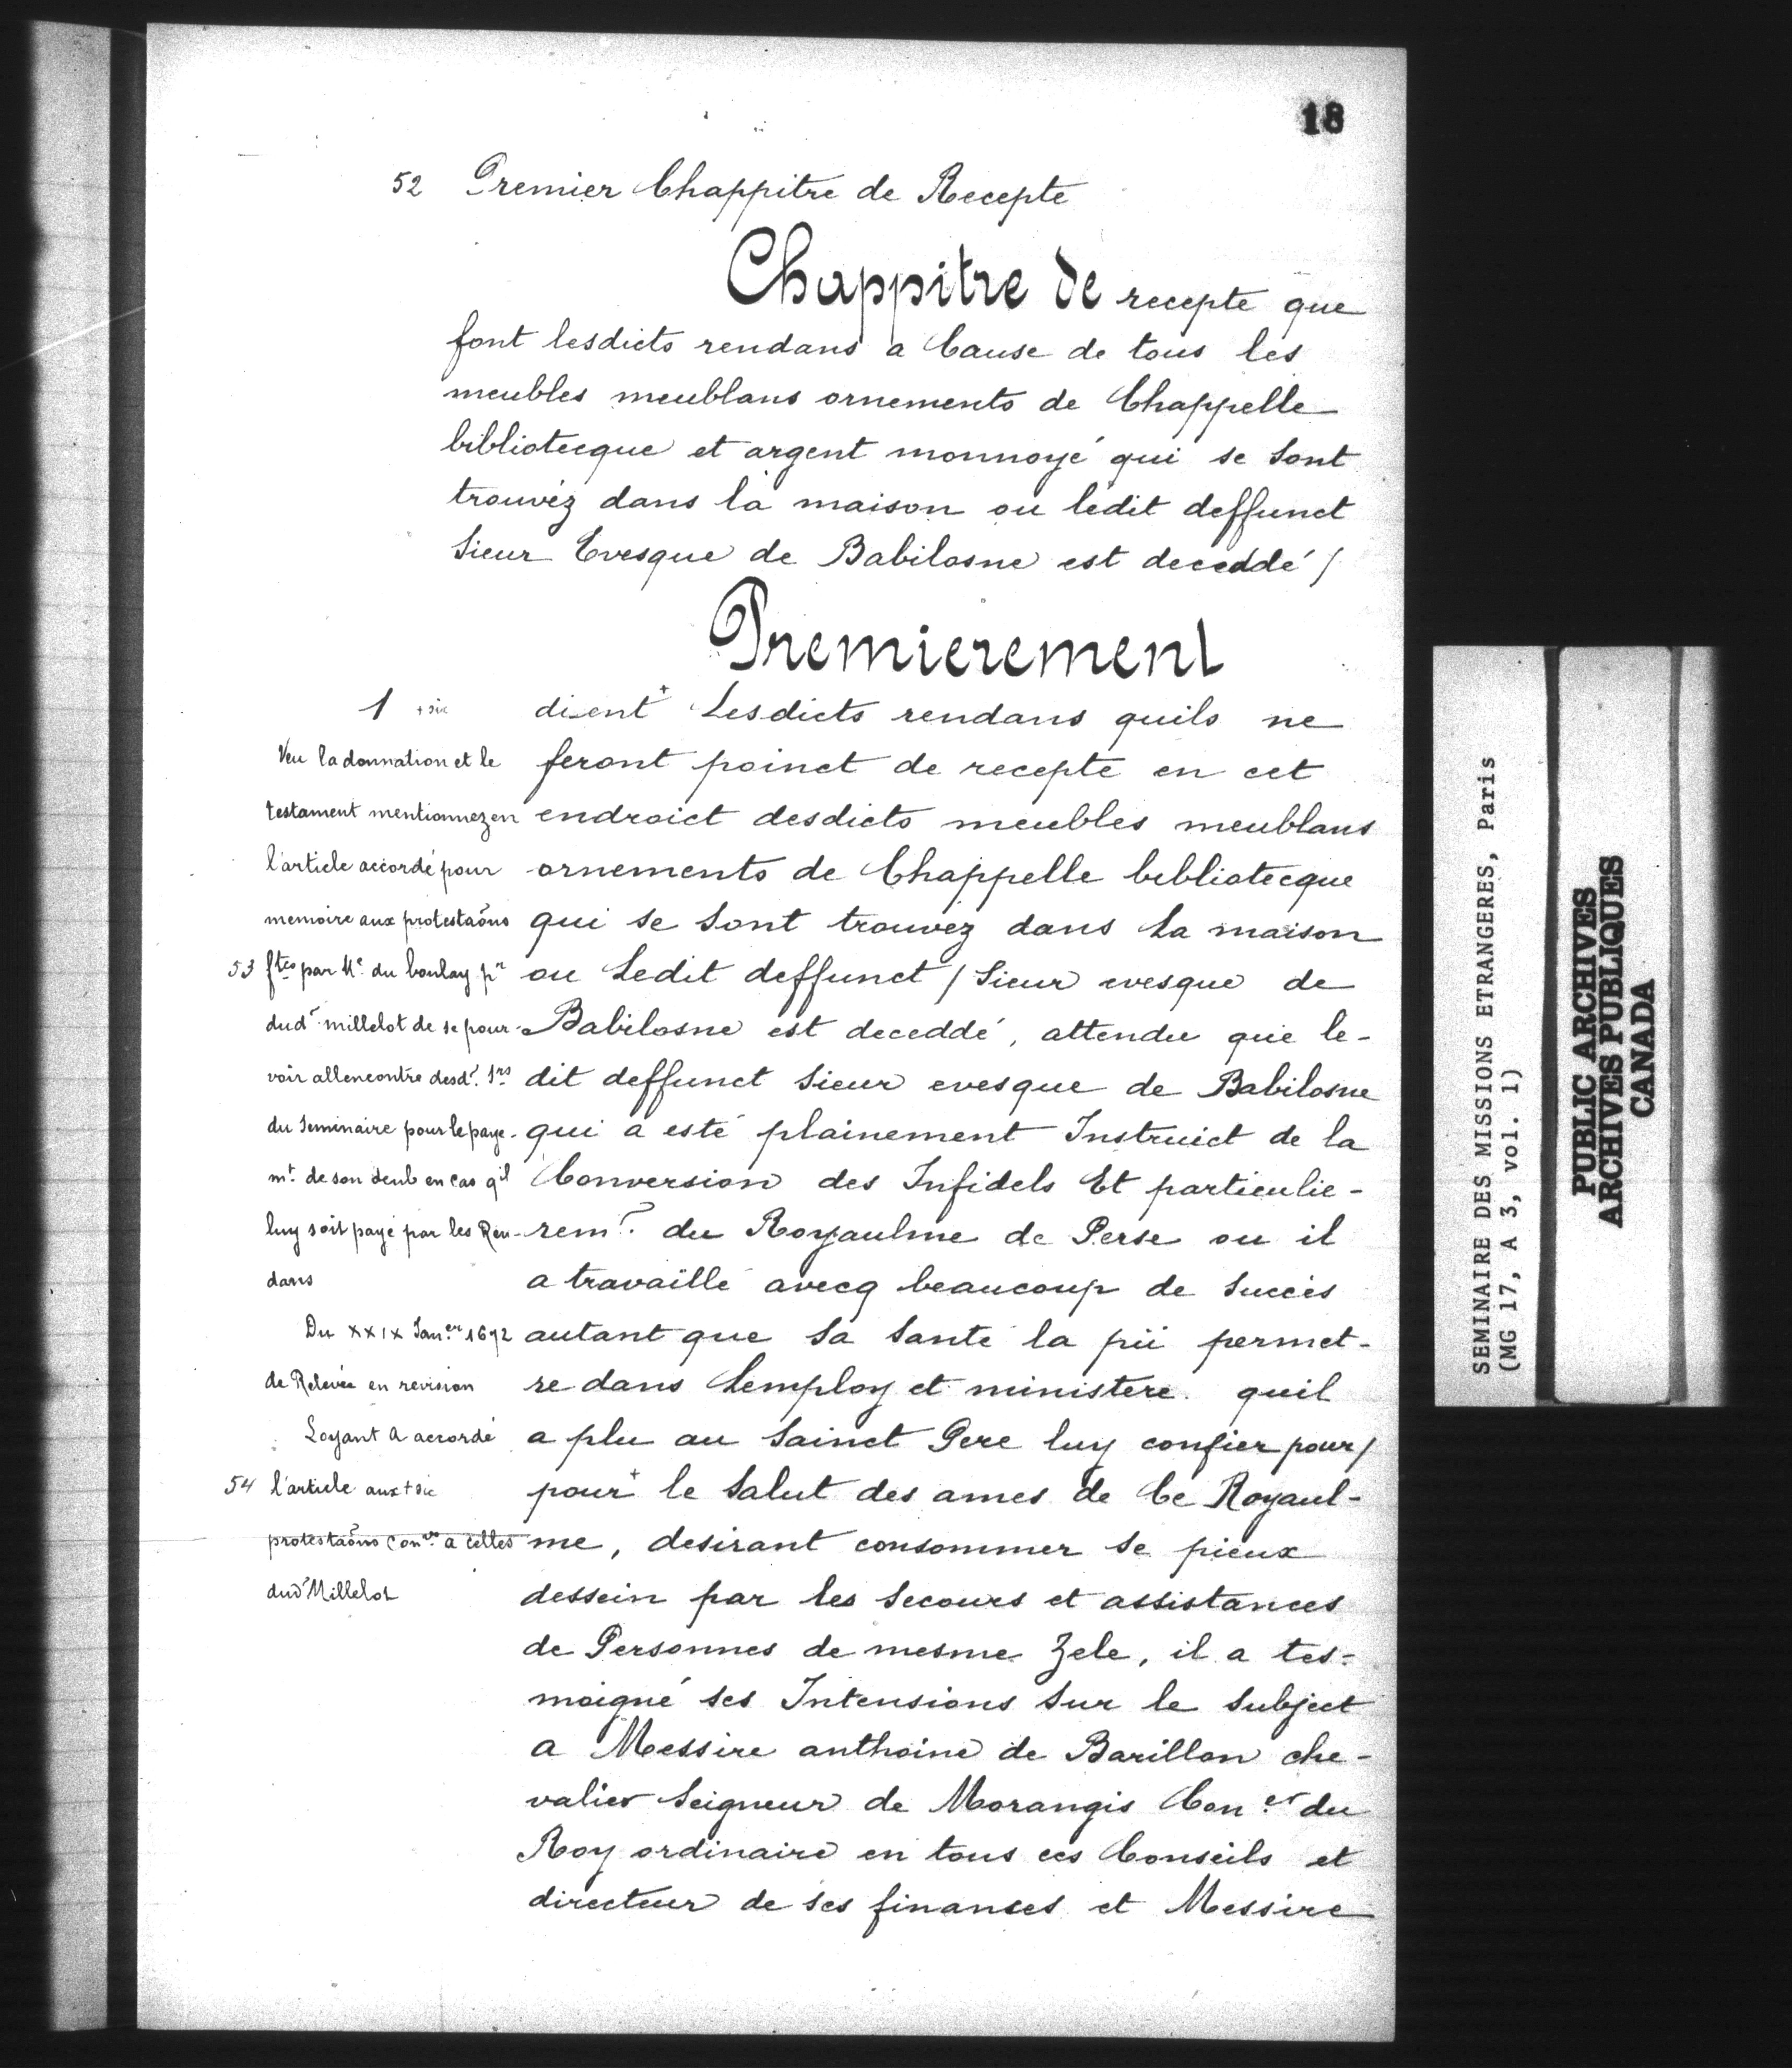 18
52 Premier Chappitre de Recepte
Chappitre de recepte que
font lesdicts rendans a Cause de tous les
meubles meublans ornements de Chappelle
bibliotecque et argent monnoyé qui se sont
trouvéz dans la maison ou ledit deffunct
Sieur Evesque de Babilosne est deceddé /
Premierement
dient + Lesdicts rendans quils ne
feront poinct de recepte en cet
endroict desdicts meubles meublans
ornements de Chappelle bibliotecque
qui se sont trouvez dans la maison
ou Ledit deffunct / Sieur evesque de
Babilosne est deceddé, attendu que le-
dit deffunct Sieur evesque de Babilosne
qui a esté plainement Instruict de la
Conversion des Infidels Et particulie-
remt. du Royaulme de Perse ou il
a travaillé avecq beaucoup de succés
autant que sa santé la pü permet-
re dans Lemploy et ministere quil
a plu au Sainct Pere luy confier pour /
pour + le Salut des ames de Ce Royaul-
me, desirant consommer se pieux
dessein par les secours et assistances
de Personnes de mesme Zele, il a tes-
moigné ses Intensions sur le subject
a Messire anthoine de Barillon che-
valier Seigneur de Morangis Coner du
Roy ordinaire en tous ces Conseils et
directeur de ses finances et Messire
1 + sic
Veu la donnation et le
testament mentionnez en
l'article accordé pour
memoire aux protestaõns
53 ftes par Me. du boulay pr
dudt. millelot de se pour-
voir allencontre desdt. Srs
du Seminaire pour le paye-
mt. de son deub en cas qil
luy soit payé par les Ren-
dans
Du XXIX Janer 1672
de Relevée en revision
Loyant a accordé
54 l'article aux + sic
protestaõns Conres a celles
dudt Millelot
SEMINAIRE DES MISSIONS ETRANGERES, Paris
(MG 17, A 3, vol. 1)
PUBLIC ARCHIVES
ARCHIVES PUBLIQUES
CANADA